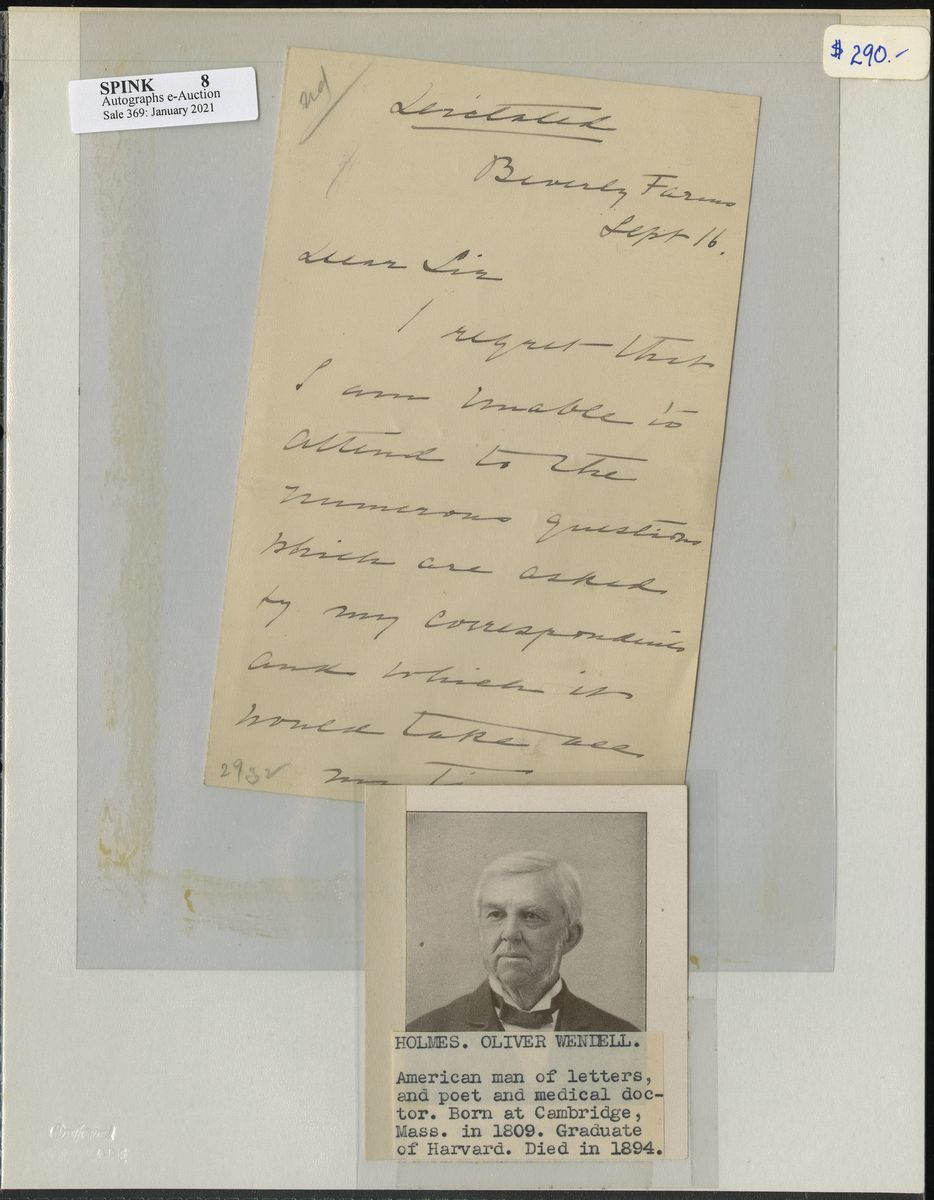 SPINK 8
Autographs e-Auction
Sale 369: January 2021
$ 290.-
Dictated
Beverly Farms
Sept 16.
Dear Sir
I regret that
I am unable to
attend to the
numerous questions
which are asked
by my correspondents
and which it
would take all
my
2932
HOLMES. OLIVER WENDELL.
American man of letters,
and poet and medical doc-
tor. Born at Cambridge,
Mass. in 1809. Graduate
of Harvard. Died in 1894.